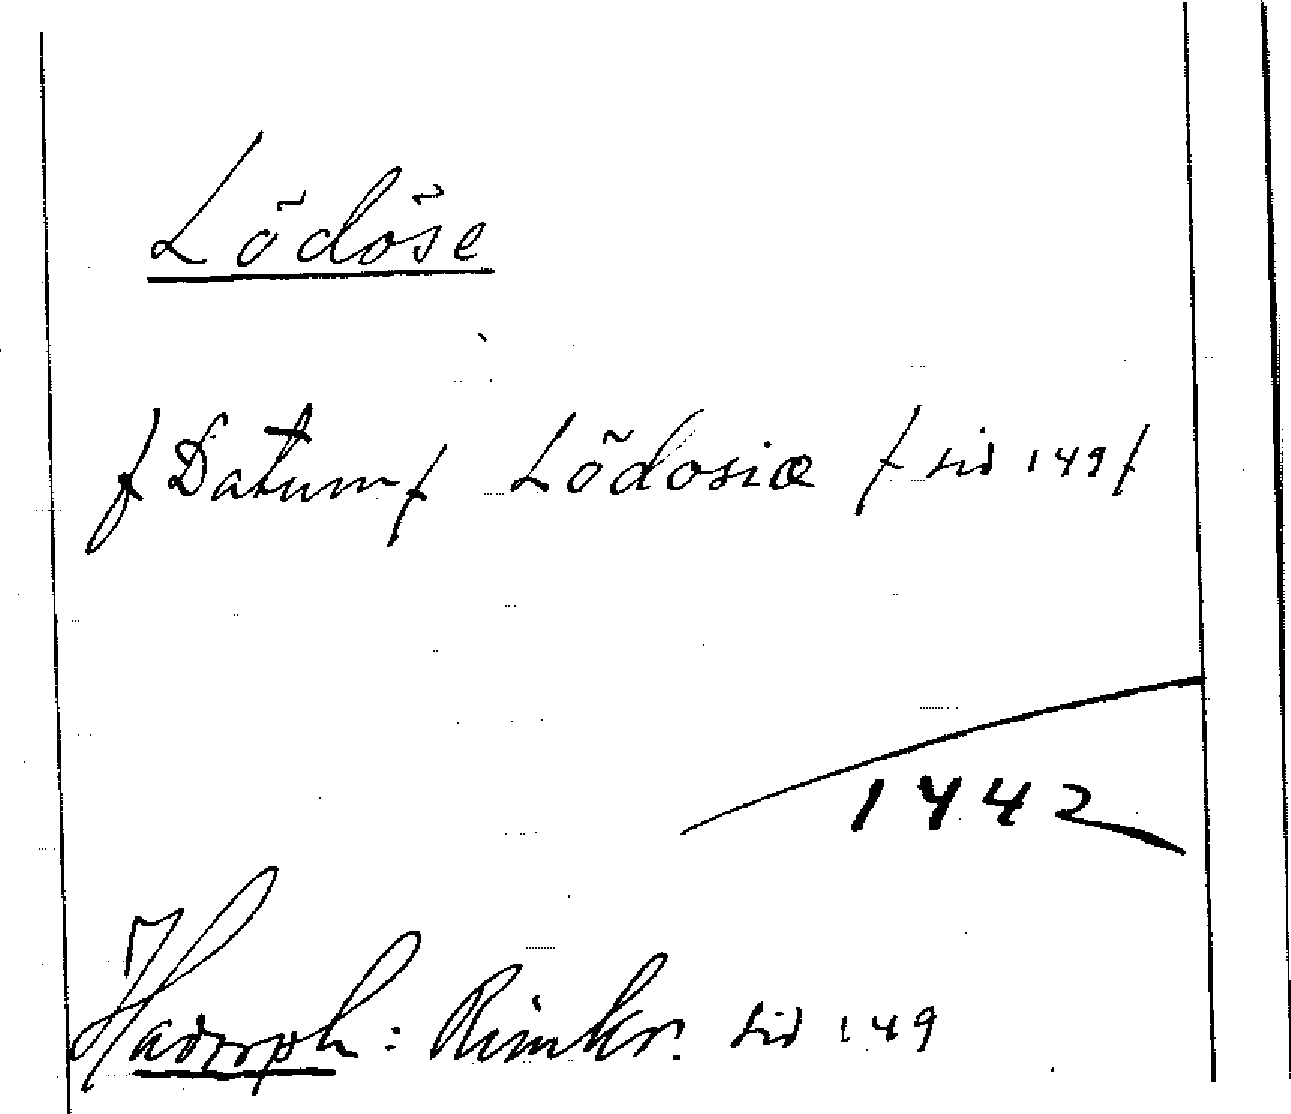 Lödöse
/Datum/ Lödosiæ / sid 149/
1442
Hadorph: Rimkr. sid 149